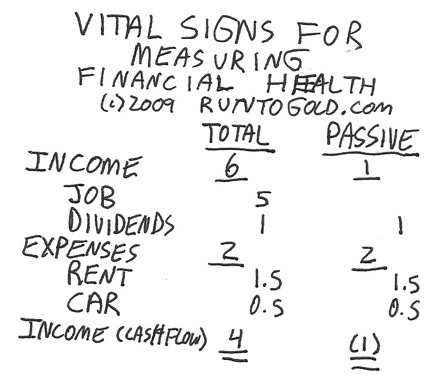 VITAL SIGNS FOR
MEASURING
FINANCIAL HEALTH
(c)2009 RUNTOGOLD.COM
TOTAL PASSIVE
INCOME 6 1
JOB 5
DIVIDENDS 1 1
EXPENSES 2 2
RENT 1.5 1.5
CAR 0.5 0.5
INCOME (CASHFLOW) 4 (1)